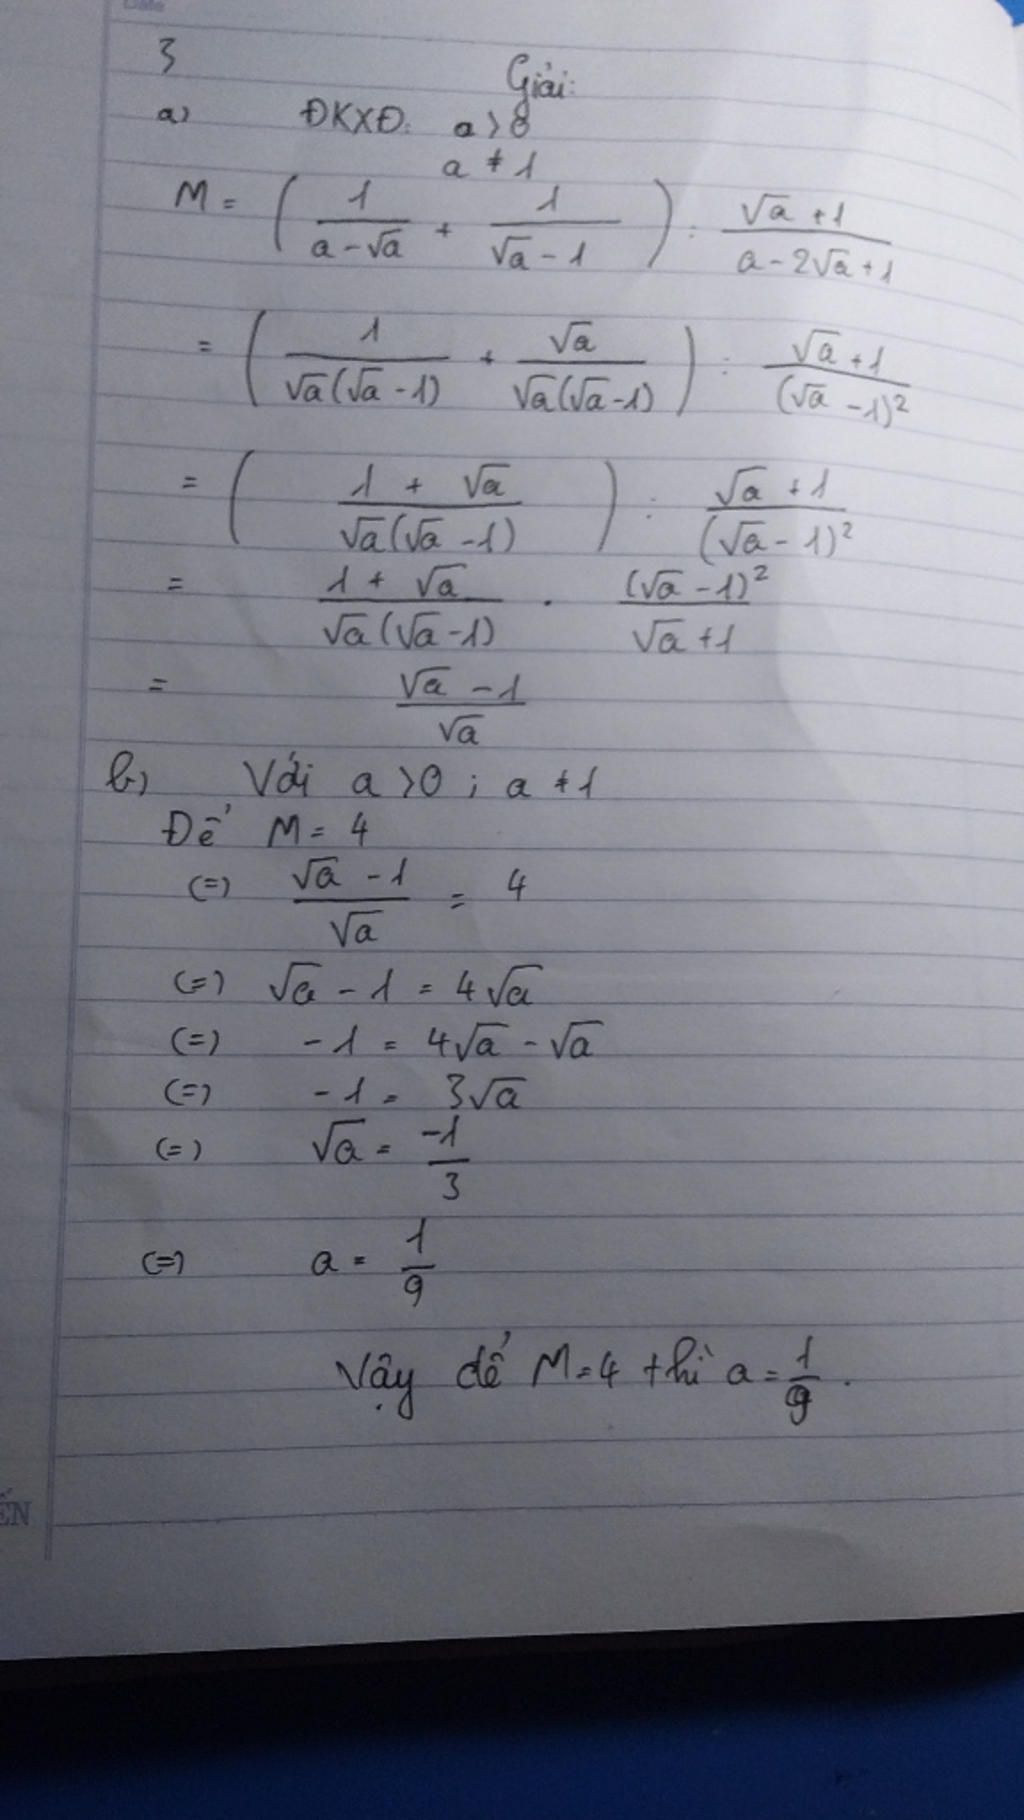 Date
3
Giải:
a) ĐKXĐ: a > 0
a ≠ 1
M = ( 1/(a - √a) + 1/(√a - 1) ) : (√a + 1)/(a - 2√a + 1)
= ( 1/(√a(√a - 1)) + √a/(√a(√a - 1)) ) : (√a + 1)/(√a - 1)²
= ( (1 + √a)/(√a(√a - 1)) ) : (√a + 1)/(√a - 1)²
= (1 + √a)/(√a(√a - 1)) . (√a - 1)²/(√a + 1)
= (√a - 1)/√a
b) Với a > 0 ; a ≠ 1
Để M = 4
(=) (√a - 1)/√a = 4
(=) √a - 1 = 4√a
(=) - 1 = 4√a - √a
(=) - 1 = 3√a
(=) √a = -1/3
(=) a = 1/9
Vậy để M = 4 thì a = 1/9 .
ẾN